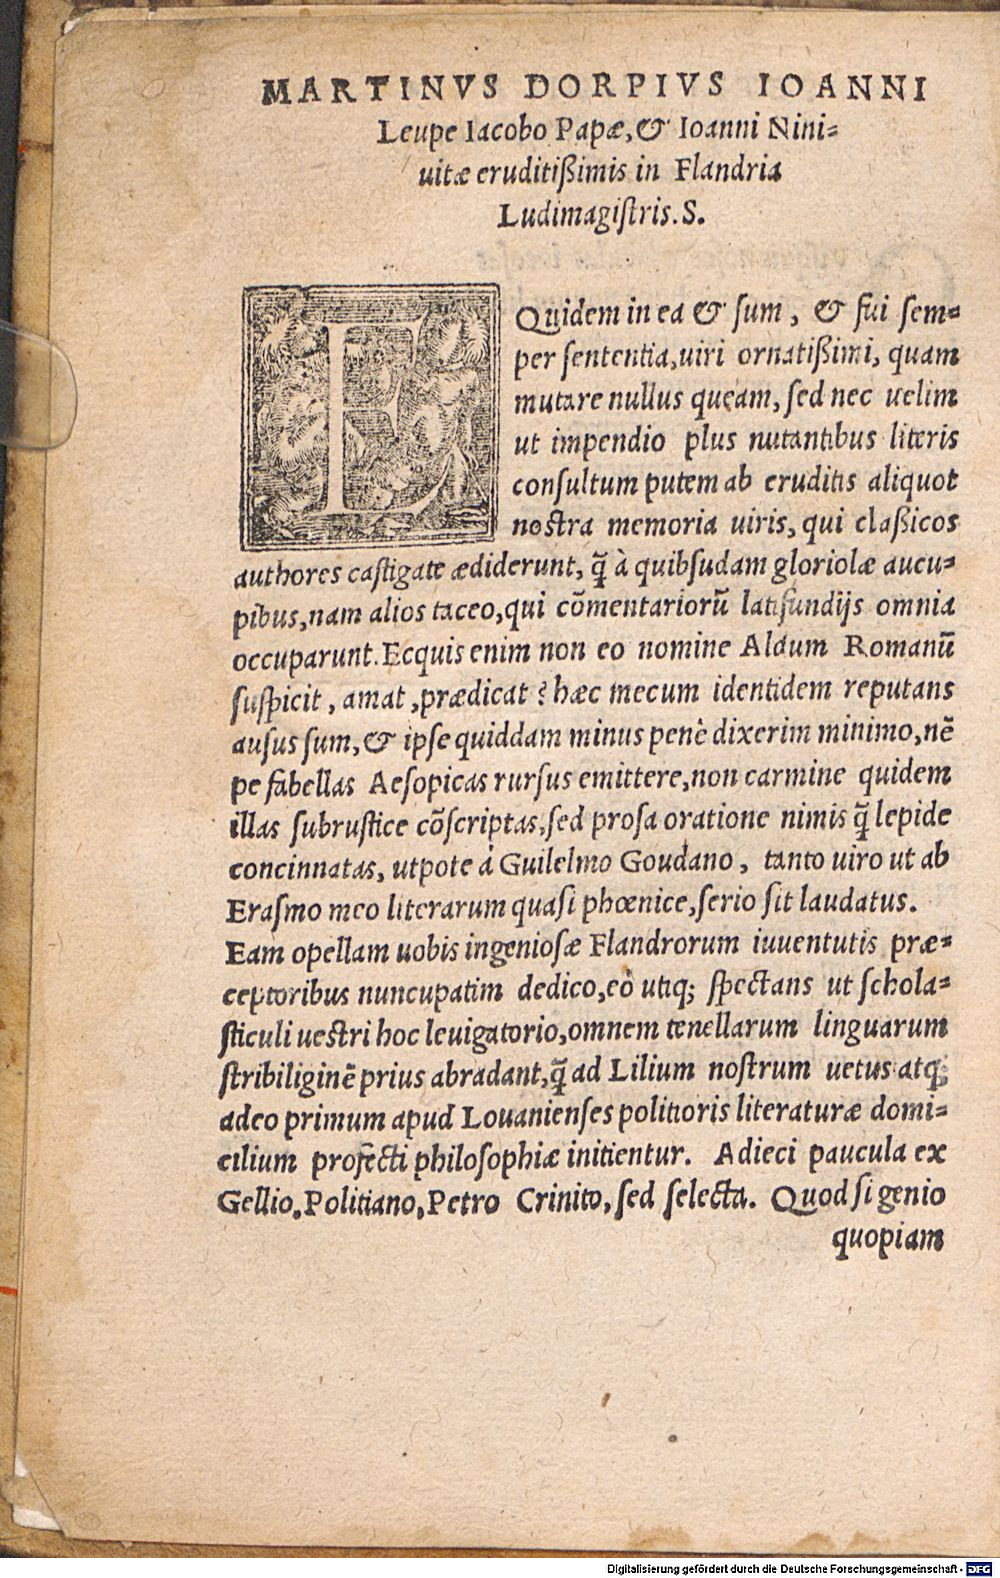 MARTINVS DORPIVS IOANNI
Leupe Iacobo Papæ, & Ioanni Nini=
uitæ eruditißimis in Flandria
Ludimagiſtris. S.
EQuidem in ea & ſum, & fui ſem=
per ſententia, uiri ornatißimi, quam
mutare nullus queam, ſed nec uelim
ut impendio plus nutantibus literis
conſultum putem ab eruditis aliquot
noſtra memoria uiris, qui claßicos
authores caſtigate ædiderunt, q̃ à quibſudam gloriolæ aucu=
pibus, nam alios taceo, qui cõmentariorũ latifundijs omnia
occuparunt. Ecquis enim non eo nomine Aldum Romanũ
ſuſpicit, amat, prædicat? hæc mecum identidem reputans
auſus ſum, & ipſe quiddam minus penè dixerim minimo, nẽ
pe fabellas Aeſopicas rurſus emittere, non carmine quidem
illas ſubruſtice cõſcriptas, ſed proſa oratione nimis q̃ lepide
concinnatas, utpote á Guilelmo Goudano, tanto uiro ut ab
Eraſmo meo literarum quaſi phœnice, ſerio ſit laudatus.
Eam opellam uobis ingenioſæ Flandrorum iuuentutis præ=
ceptoribus nuncupatim dedico, eò utiq; ſpectans ut ſchola=
ſticuli ueſtri hoc leuigatorio, omnem tenellarum linguarum
ſtribiliginẽ prius abradant, q̃ ad Lilium noſtrum uetus atq;
adeo primum apud Louanienſes politioris literaturæ domi=
cilium profecti philoſophiæ initientur. Adieci paucula ex
Gellio, Politiano, Petro Crinito, ſed ſelecta. Quod ſi genio
quopiam
Digitalisierung gefördert durch die Deutsche Forschungsgemeinschaft - DFG